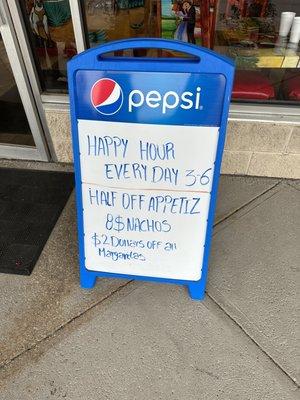 pepsi
HAPPY HOUR
EVERY DAY 3-6
HALF OFF APPETIZ
8$ NACHOS
$2 Dollars off all
Margaritas